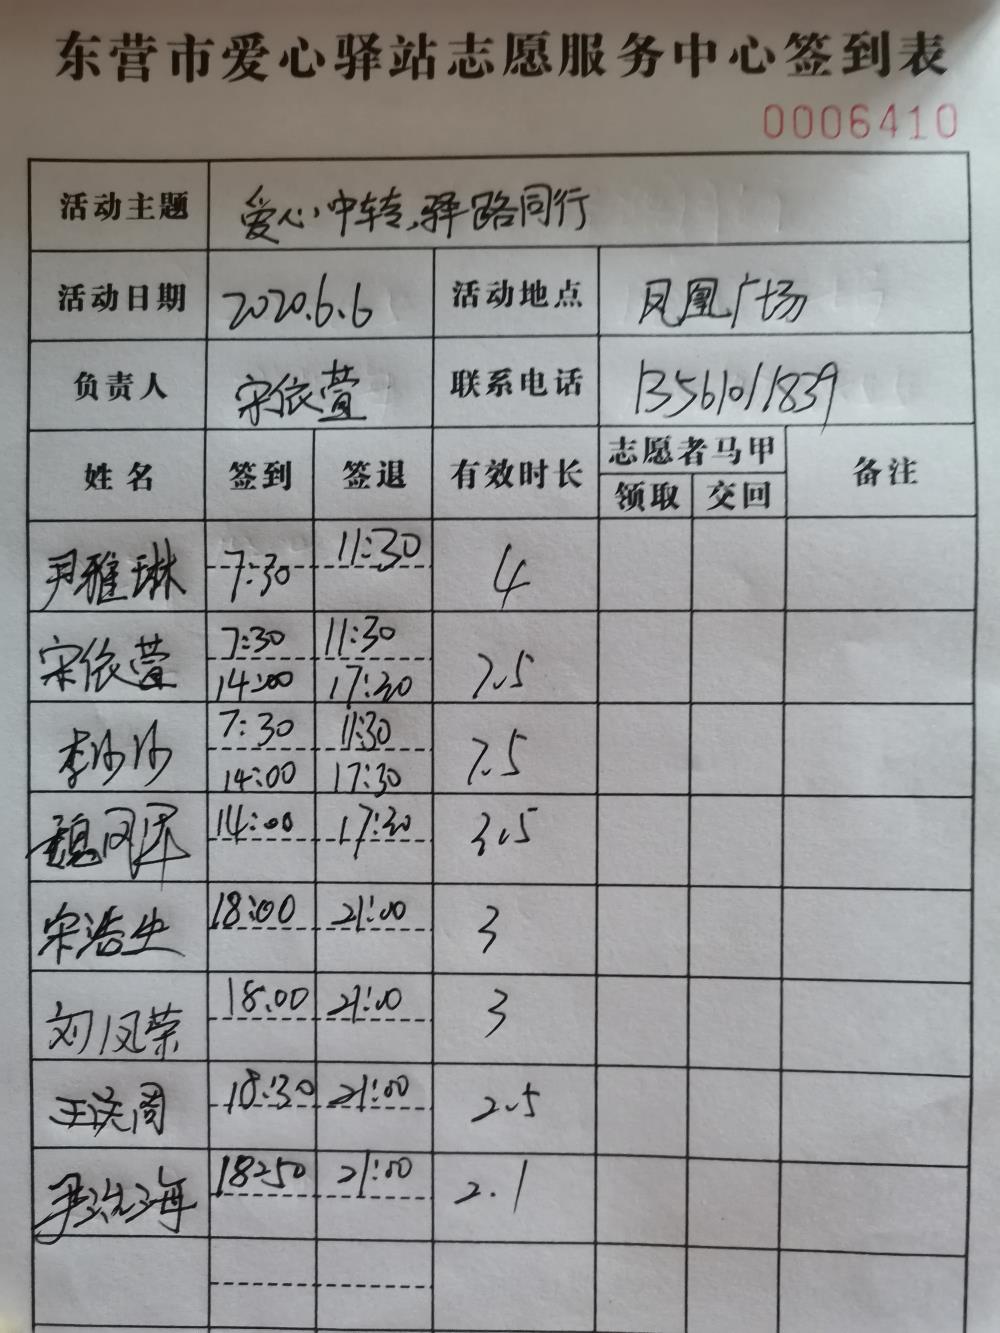 东营市爱心驿站志愿服务中心签到表
0006410
活动主题 爱心中转,驿路同行
活动日期 2020.6.6 活动地点 凤凰广场
负责人 宋依萱 联系电话 13561011839
姓名 签到 签退 有效时长 志愿者马甲 备注
领取 交回
尹雅琳 7:30 11:30 4
宋依萱 7:30 11:30 7.5
14:00 17:30
李沙沙 7:30 11:30 7.5
14:00 17:30
魏凤 14:00 17:30 3.5
宋浩生 18:00 21:00 3
刘凤荣 18:00 21:00 3
王洪周 18:30 21:00 2.5
尹洪海 18:50 21:00 2.1